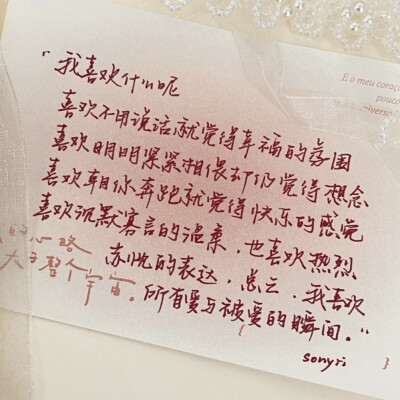 「我喜欢什么呢
喜欢不用说话就觉得幸福的氛围
喜欢明明紧紧相偎却仍觉得想念
喜欢朝你奔跑就觉得快乐的感觉
喜欢沉默寡言的温柔，也喜欢热烈
赤忱的表达，总之，我喜欢
所有爱与被爱的瞬间。"
sonyri
E o meu coraç
pouco
niverso
大于整个宇宙。